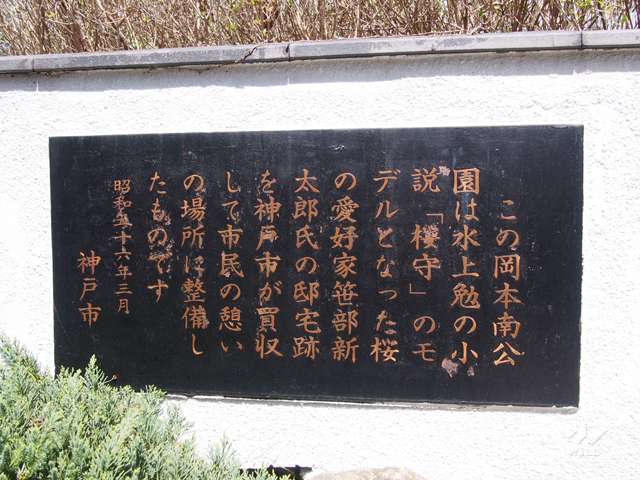 この岡本南公
園は水上勉の小
説「桜守」のモ
デルとなった桜
の愛好家笹部新
太郎氏の邸宅跡
を神戸市が買収
して市民の憩い
の場所に整備し
たものです
昭和五十六年三月
神戸市